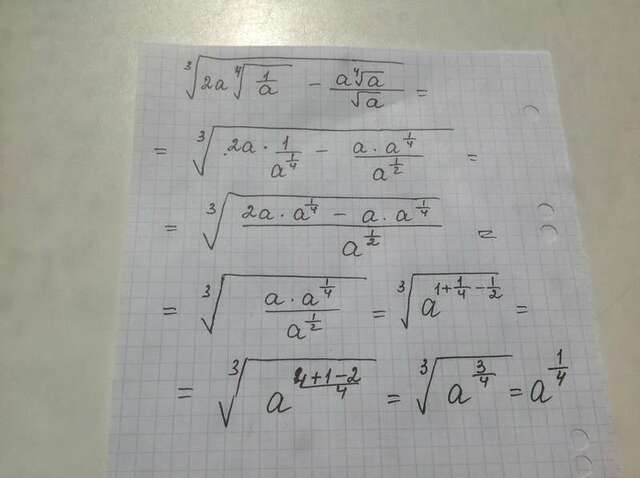 ∛(2a ∜(1/a) − (a ∜a)/(√a)) =
= ∛(2a · 1/a^(1/4) − (a · a^(1/4))/(a^(1/2))) =
= ∛((2a · a^(1/4) − a · a^(1/4))/(a^(1/2))) =
= ∛((a · a^(1/4))/(a^(1/2))) = ∛(a^(1+1/4−1/2)) =
= ∛(a^((4+1−2)/4)) = ∛(a^(3/4)) = a^(1/4)